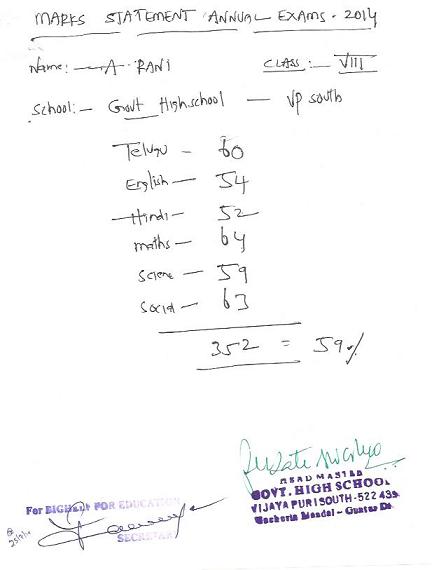 MARKS STATEMENT ANNUAL EXAMS - 2014
Name: - A. RANI CLASS: - VIII
School: - Govt High school - VP South
Telugu - 60
English - 54
Hindi - 52
maths - 64
Sciene - 59
Social - 63
352 = 59%
HEAD MASTER
GOVT. HIGH SCHOOL
VIJAYAPURI SOUTH-522 439
Macherla Mandal - Guntur Dt
For BIGHELP FOR EDUCATION
SECRETARY